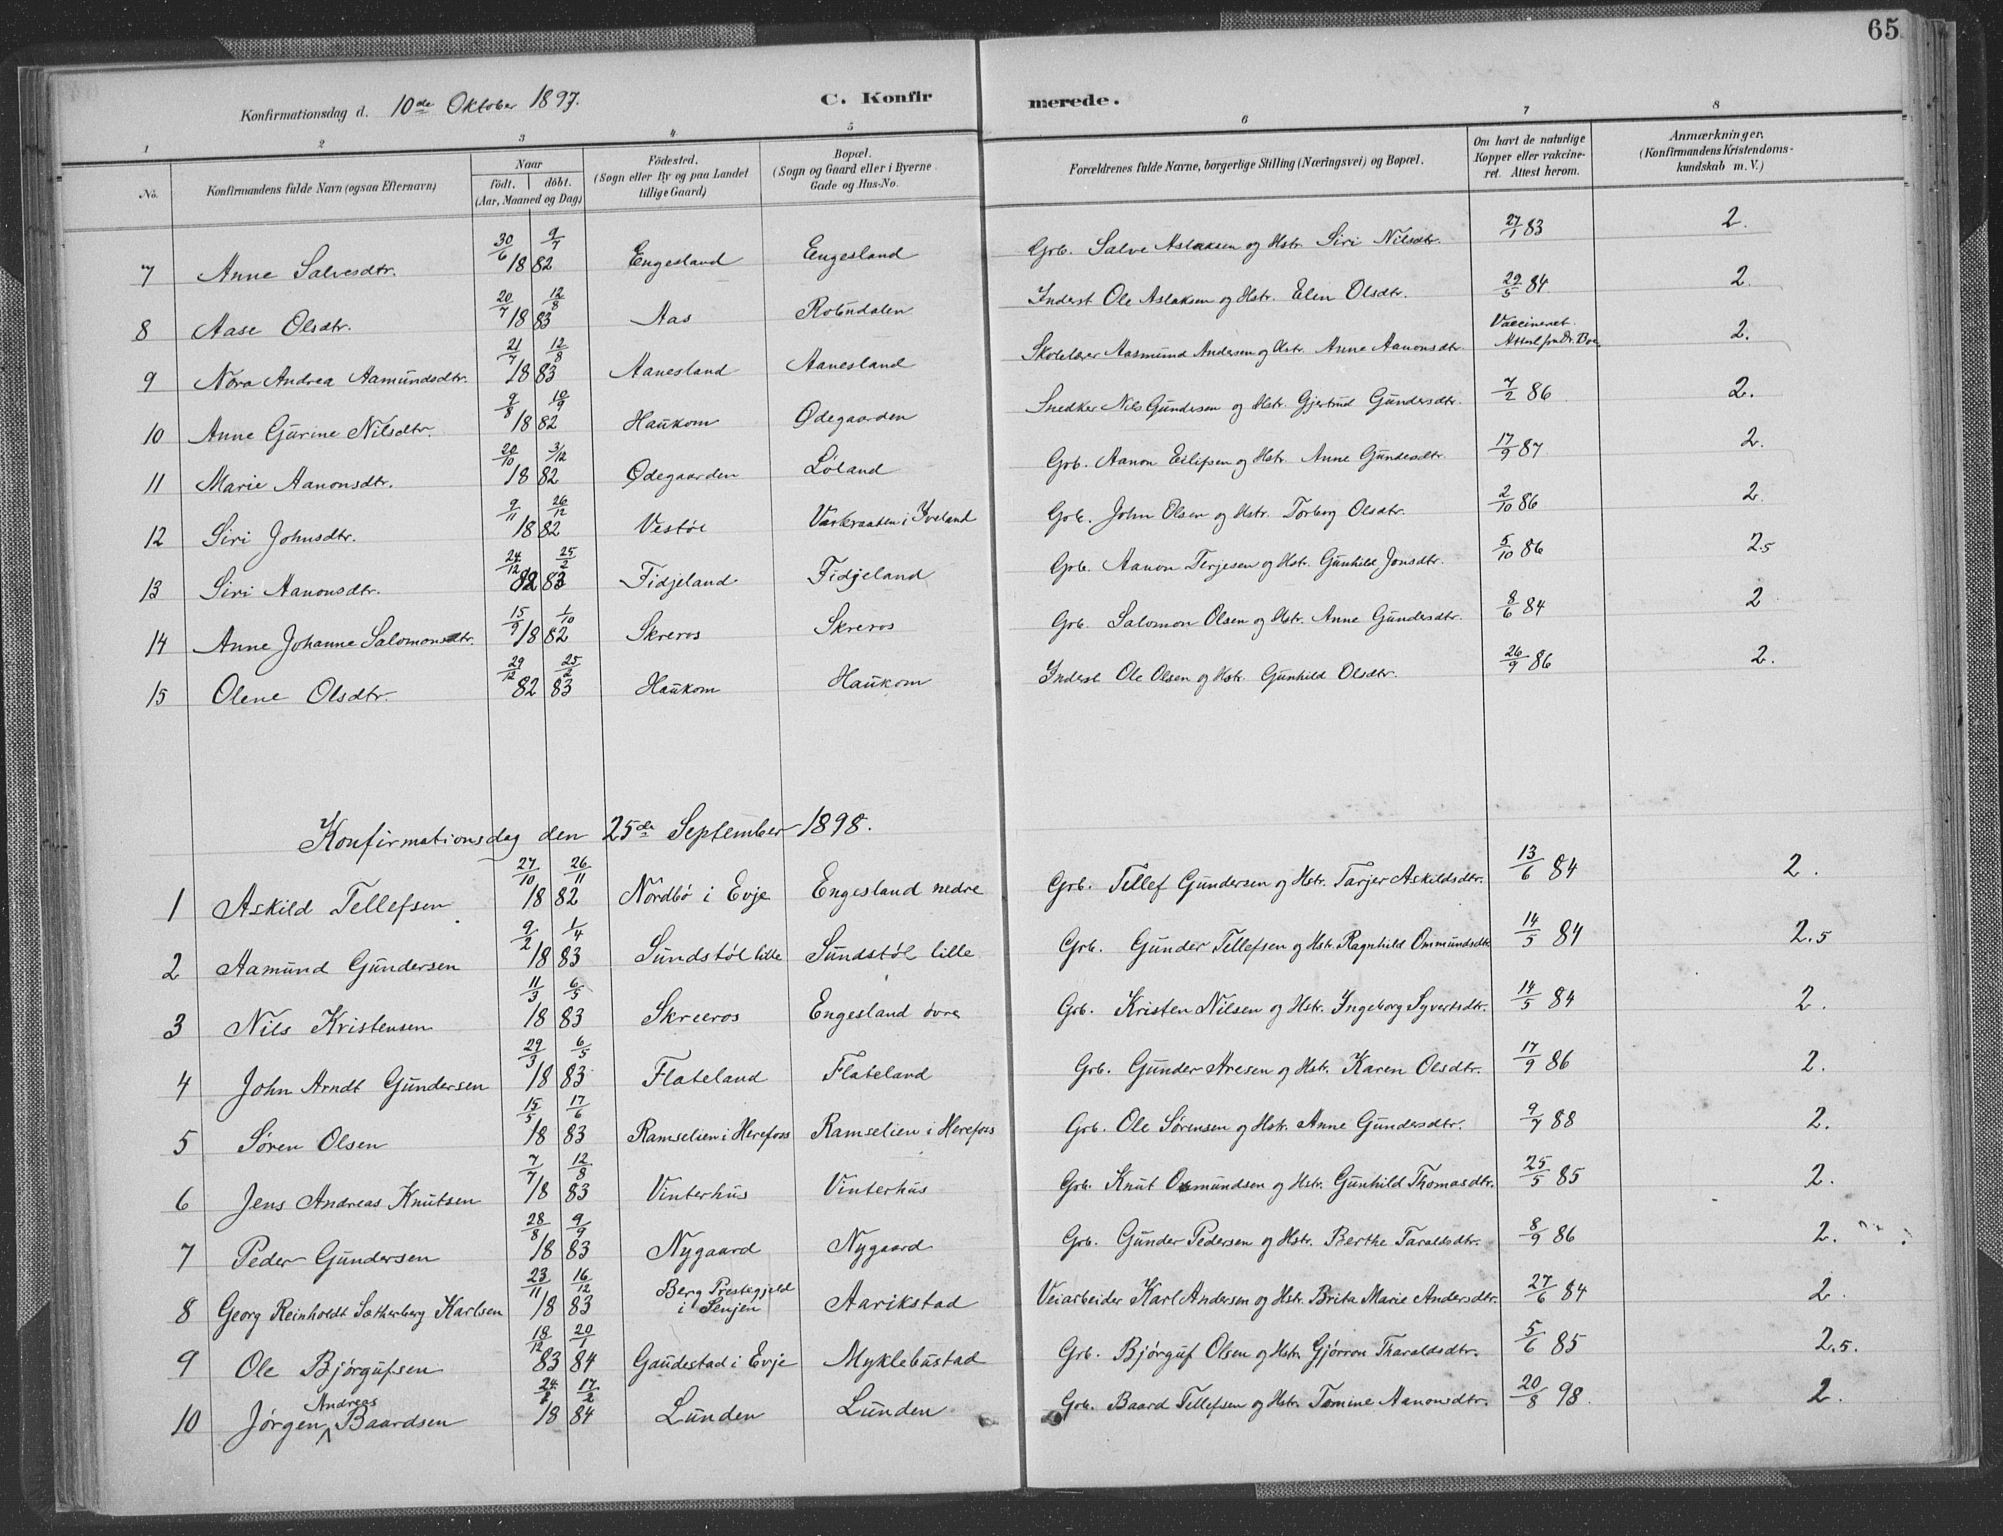 65
Konfirmationsdag d. 10de Oktober 1897. C. Konfirmerede.
1 2 3 4 5 6 7 8
No. Konfirmandens fulde Navn (ogsaa Efternavn) Naar født. døbt. (Aar, Maaned og Dag) Fødested. (Sogn eller By og paa Landet tillige Gaard) Bopæl. (Sogn og Gaard eller i Byerne Gade og Hus-No. Forældrenes fulde Navne, borgerlige Stilling (Næringsvei) og Bopæl. Om havt de naturlige Kopper eller vakcineret. Attest herom. Anmærkninger. (Konfirmandens Kristendomskundskab m. V.)
7 Anne Salvesdtr. 30/6 9/7 1882 Engesland Engesland Grb. Salve Aslaksen og Hstr. Siri Nilsdtr. 27/1 83 2.
8 Aase Olsdtr. 20/7 12/8 1883 Aas Robudalen Inderst Ole Aslaksen og Hstr. Elen Olsdtr. 29/5 84 2.
9 Nora Andrea Aamundsdtr. 21/7 12/8 1883 Aanesland Aanesland Skolelærer Aasmund Andersen og Hstr. Anne Aanonsdtr. Vaccineret. Attest fra Dr. Boe 2.
10 Anne Gurine Nilsdtr. 9/8 10/9 1882 Haukom Ødegaarden Snedker Nils Gundersen og Hstr. Gjertrud Gundersdtr. 7/2 86 2.
11 Marie Aanonsdtr. 20/10 3/12 1882 Ødegaarden Løland Grb. Aanon Eilifsen og Hstr. Anne Gundersdtr. 17/9 87 2.
12 Siri Johnsdtr. 9/11 26/12 1882 Vestøl Vatkraaten i Iveland Grb. John Olsen og Hstr. Torborg Olsdtr. 2/10 86 2.
13 Siri Aanonsdtr. 24/12 82 25/2 83 Fidjeland Fidjeland Grb. Aanon Terjesen og Hstr. Gunhild Jonsdtr. 5/10 86 2.5
14 Anne Johanne Salomonsdtr. 15/9 1/10 1882 Skreros Skreros Grb. Salomon Olsen og Hstr. Anne Gundersdtr. 8/6 84 2
15 Olene Olsdtr. 29/12 82 25/2 83 Haukom Haukom Inderst Ole Olsen og Hstr. Gunhild Olsdtr. 26/9 86 2.
Konfirmationsdag den 25de September 1898.
1 Askild Tellefsen 27/10 26/11 1882 Nordbø i Evje Engesland nedre Grb. Tellef Gundersen og Hstr. Tarjer Askildsdtr. 13/6 84 2.
2 Aamund Gundersen 9/2 1/4 1883 Sundstøl lille Sundstøl lille Grb. Gunder Tellefsen og Hstr. Ragnhild Ommundsdtr. 14/5 84 2.5
3 Nils Kristensen 11/3 6/5 1883 Skreeros Engesland øvre Grb. Kristen Nilsen og Hstr. Ingeborg Syvertsdtr. 14/5 84 2.
4 John Arndt Gundersen 29/3 6/5 1883 Flateland Flateland Grb. Gunder Aresen og Hstr. Karen Olsdtr. 17/9 86 2.
5 Søren Olsen 15/5 17/6 1883 Ramselien i Herefoss Ramselien i Herefoss Grb. Ole Sørensen og Hstr. Anne Gundersdtr. 9/7 88 2.
6 Jens Andreas Knutsen 7/7 12/8 1883 Vinterhus Vinterhus Grb. Knut Ommundsen og Hstr. Gunhild Thomasdtr. 25/5 85 2.
7 Peder Gundersen 28/8 9/9 1883 Nygaard Nygaard Grb. Gunder Pedersen og Hstr. Berthe Taraldsdtr. 8/9 86 2.
8 Georg Reinholdt Sætherberg Karlsen 23/11 16/12 1883 Berg Prestegjeld i Senjen Aarikstad Veiarbeider Karl Andersen og Hstr. Brita Marie Andersdtr. 27/6 84 2.
9 Ole Bjørgufsen 18/12 83 20/1 84 Gaudestad i Evje Myklebustad Grb. Bjørguf Olsen og Hstr. Gjørron Tharaldsdtr. 5/6 85 2.5.
10 Jørgen Andreas Baardsen 24/ 17/2 1884 Lunden Lunden Grb. Baard Tellefsen og Hstr. Tomine Aanonsdtr. 20/8 98. 2.